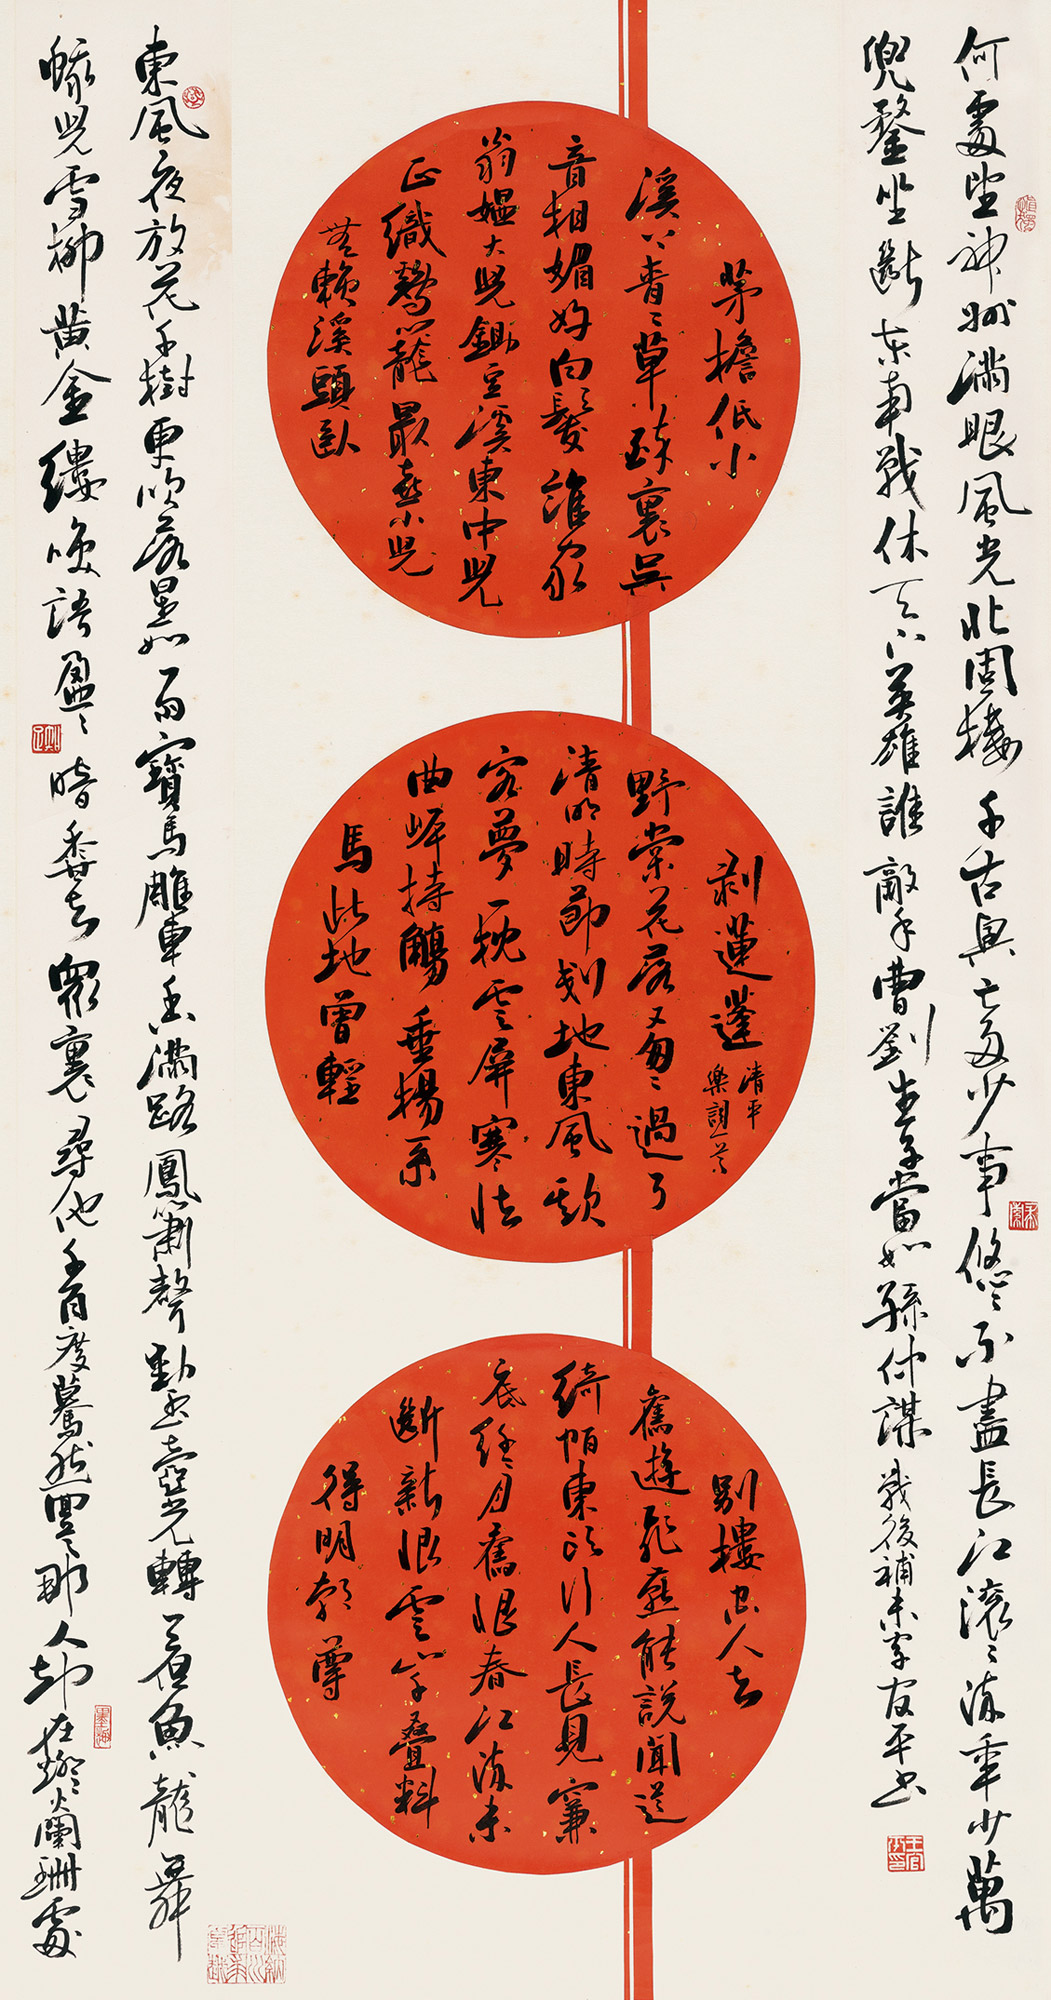 何處望神州滿眼風光北固樓千古興亡多少事悠〻不盡長江滾〻流年少萬
兜鍪坐斷東南戰休天下英雄誰敵手曹劉生子當如孫仲謀戰後補未字官平書
茅檐低小
溪上青〻草醉裏吳
音相媚好白髮誰家
翁媼大兒鋤豆溪東中兒
正織鷄籠最喜小兒
無賴溪頭臥
剥蓮蓬清平
樂調
野棠花落又匆〻過了
清明時節剗地東風欺
客夢一枕雲屏寒怯
曲岸持觴垂楊系
馬此地曾輕
別樓空人去
舊遊飛燕能說聞道
綺陌東頭行人長見簾
底纖〻月舊恨春江流未
斷新恨雲山千叠料
得明朝尊
東風夜放花千樹更吹落星如雨寶馬雕車香滿路鳳簫聲動玉壺光轉一夜魚龍舞
蛾兒雪柳黄金縷笑語盈〻暗香去衆裏尋他千百度驀然回首那人却在燈火闌珊處